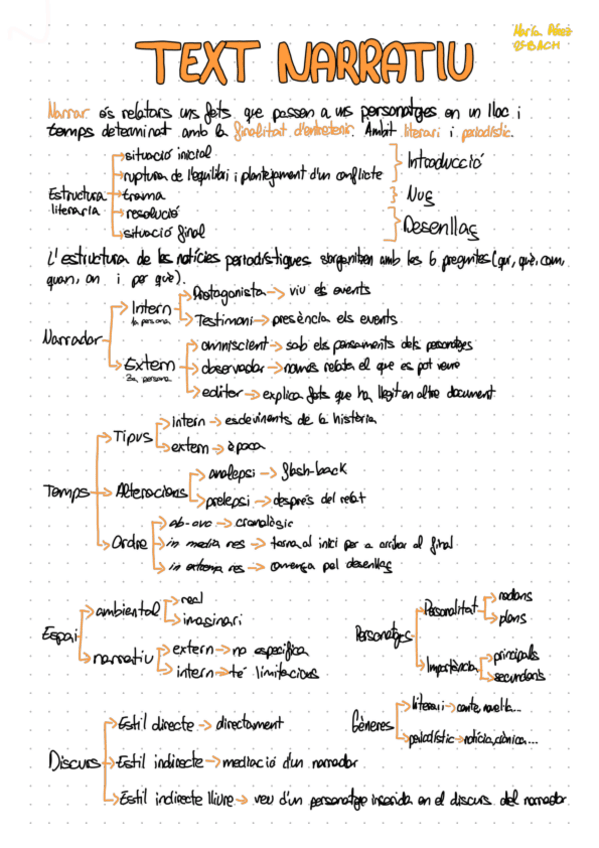 María
2ºBACH
TEXT NARRATIU
Narrar és relatars uns fets que passen a uns personatges en un lloc i
temps determinat amb la finalitat d'entretenir. Àmbit literari i periodístic.
Estructura literaria
situació inicial
ruptura de l'equilibri i plantejament d'un conflicte
trama
resolució
situació final
Introducció
Nus
Desenllaç
L'estructura de les notícies periodístiques s'organitzen amb les 6 preguntes (qui, què, com,
quan, on i per què).
Narrador
Intern
1a persona
Protagonista → viu els events
Testimoni → presència els events
Extern
3a persona
omniscient → sab els pensaments dels personatges
observador → només relata el que es pot veure
editor → explica fets que ha llegit en altre document
Temps
Tipus
Intern → esdeviments de la història
extern → època
Alteracions
analepsi → flash-back
prolepsi → després del relat
Ordre
ab-ovo → cronològic
in media res → torna al inici per a arribar al final
in extrema res → comença pel desenllaç
Espai
ambiental
real
imaginari
narratiu
extern → no especifica
intern → té limitacions
Personatges
Personalitat
rodons
plans
Importància
principals
secundaris
Gèneres
literari → conte, novel·la...
periodístic → notícia, crònica...
Discurs
Estil directe → directament
Estil indirecte → mediació d'un narrador
Estil indirecte lliure → veu d'un personatge inserida en el discurs del narrador